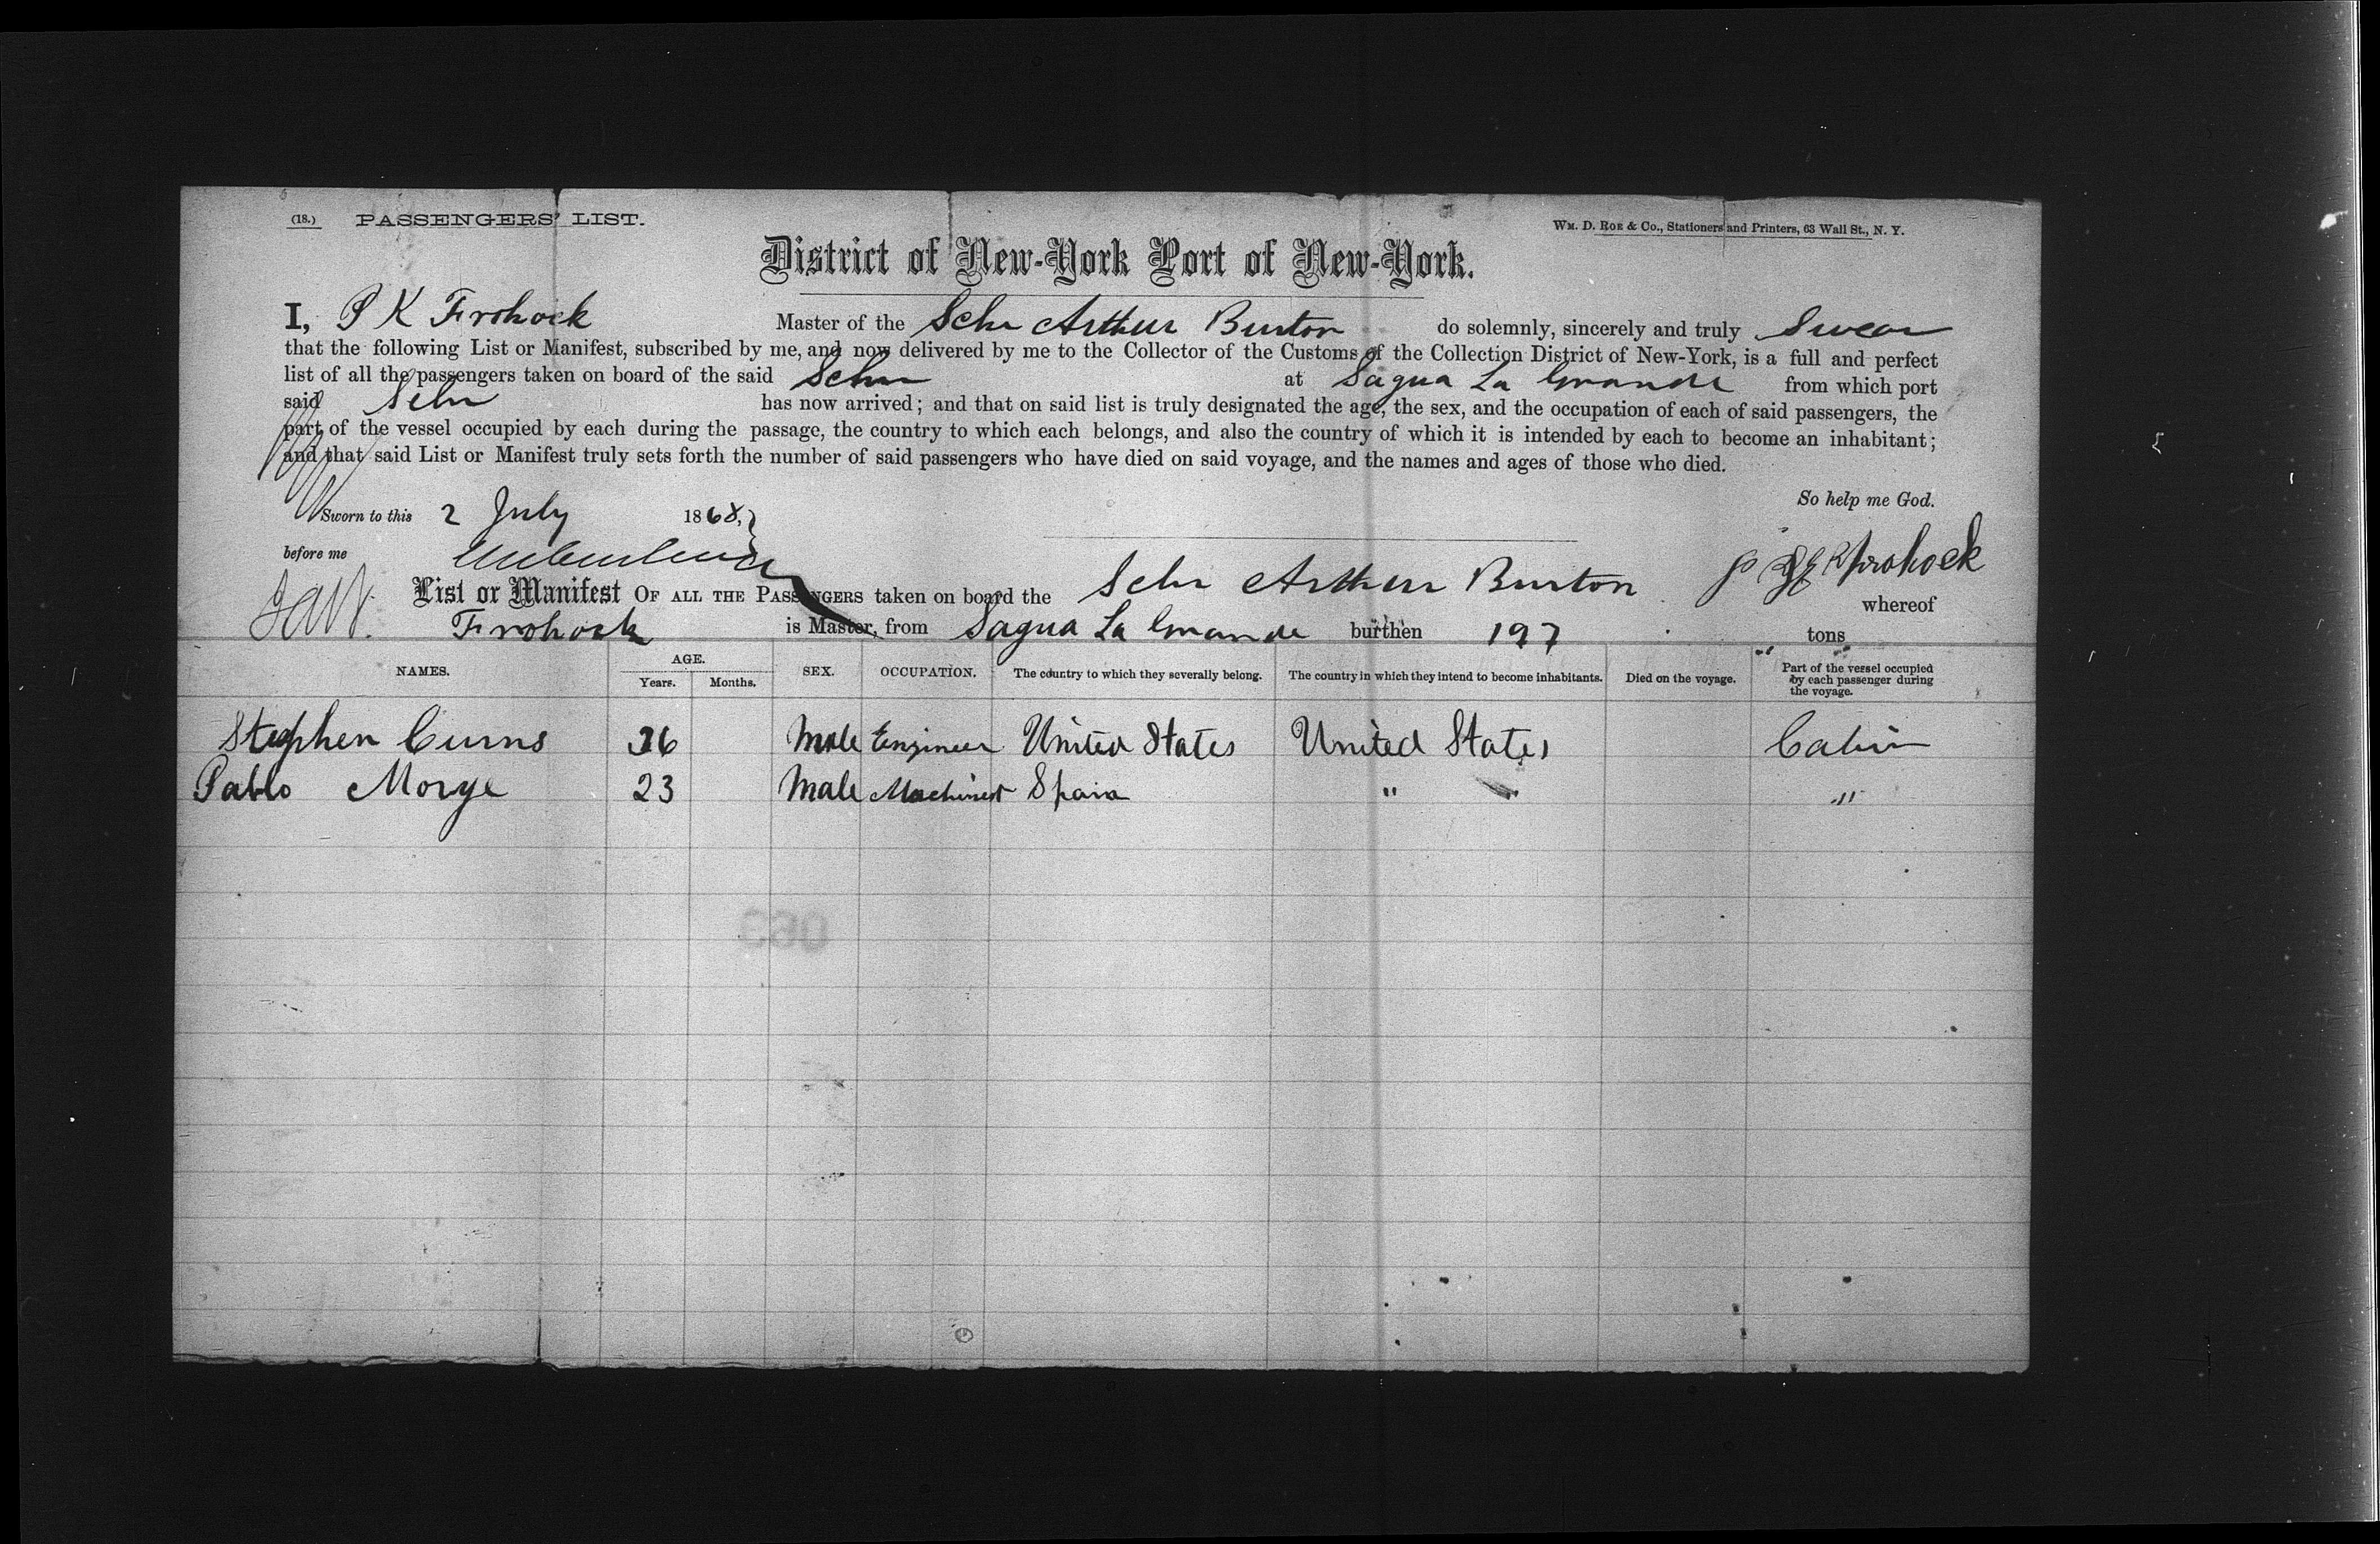 (18.) PASSENGERS' LIST.
Wm. D. Roe & Co., Stationers and Printers, 63 Wall St., N. Y.
District of New-York Port of New-York.
I, P K Frohock Master of the Schr Arthur Burton do solemnly, sincerely and truly Swear
that the following List or Manifest, subscribed by me, and now delivered by me to the Collector of the Customs of the Collection District of New-York, is a full and perfect
list of all the passengers taken on board of the said Schr at Sagua La Grande from which port
said Schr has now arrived; and that on said list is truly designated the age, the sex, and the occupation of each of said passengers, the
part of the vessel occupied by each during the passage, the country to which each belongs, and also the country of which it is intended by each to become an inhabitant;
and that said List or Manifest truly sets forth the number of said passengers who have died on said voyage, and the names and ages of those who died.
So help me God.
Sworn to this 2 July 1868,
before me
Frohock
List or Manifest OF ALL THE PASSENGERS taken on board the Schr Arthur Burton whereof
Frohock is Master, from Sagua La Grande burthen 197 tons
NAMES. AGE. Years. Months. SEX. OCCUPATION. The country to which they severally belong. The country in which they intend to become inhabitants. Died on the voyage. Part of the vessel occupied by each passenger during the voyage.
Stephen Curns 36 Male Engineer United States United States Cabin
Pablo Morge 23 Male Machinist Spain " " "
063